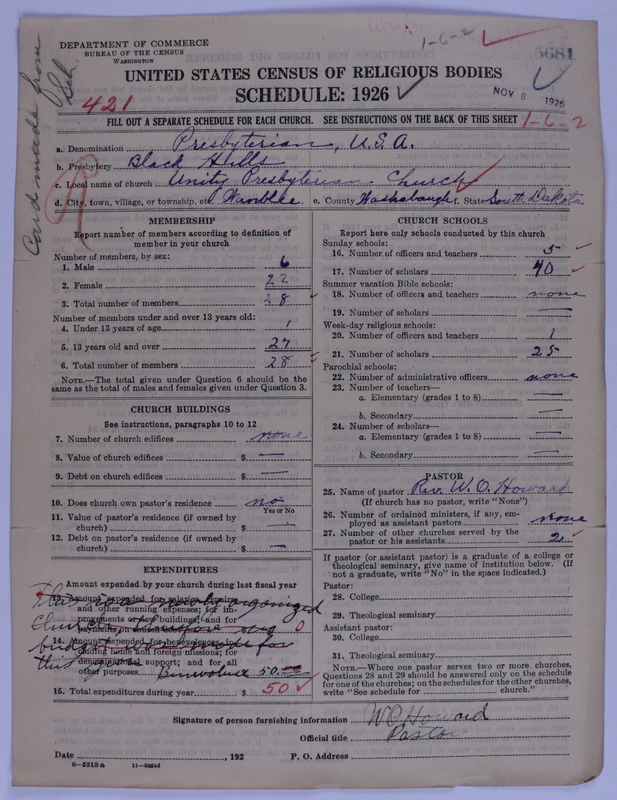 Card made from Sch.
DEPARTMENT OF COMMERCE
BUREAU OF THE CENSUS
WASHINGTON
1-6-2
5681
UNITED STATES CENSUS OF RELIGIOUS BODIES
SCHEDULE: 1926
NOV 8 1926
421
FILL OUT A SEPARATE SCHEDULE FOR EACH CHURCH. SEE INSTRUCTIONS ON THE BACK OF THIS SHEET
1-6-2
a. Denomination Presbyterian, U.S.A.
b. Presbytery Black Hills
c. Local name of church Unity Presbyterian Church
d. City, town, village, or township, etc. Wanblee e. County Washabaugh f. State South Dakota
MEMBERSHIP
Report number of members according to definition of member in your church
Number of members, by sex:
1. Male 6
2. Female 22
3. Total number of members 28
Number of members under and over 13 years old:
4. Under 13 years of age 1
5. 13 years old and over 27
6. Total number of members 28
NOTE.—The total given under Question 6 should be the same as the total of males and females given under Question 3.
CHURCH BUILDINGS
See instructions, paragraphs 10 to 12
7. Number of church edifices none
8. Value of church edifices $ —
9. Debt on church edifices $ —
10. Does church own pastor's residence no
Yes or No
11. Value of pastor's residence (if owned by church) $
12. Debt on pastor's residence (if owned by church) $ —
EXPENDITURES
Amount expended by your church during last fiscal year
13. Amount expended for salaries, repairs, and other running expenses; for improvements or new buildings; and for payments on church debt 0
14. Amount expended for benevolences, including home and foreign missions; for denominational support; and for all other purposes Benevolence 50.00
newly organized
church
15. Total expenditures during year $ 50
CHURCH SCHOOLS
Report here only schools conducted by this church
Sunday schools:
16. Number of officers and teachers 5
17. Number of scholars 40
Summer vacation Bible schools:
18. Number of officers and teachers none
19. Number of scholars —
Week-day religious schools:
20. Number of officers and teachers 1
21. Number of scholars 25
Parochial schools:
22. Number of administrative officers none
23. Number of teachers—
a. Elementary (grades 1 to 8) —
b. Secondary —
24. Number of scholars—
a. Elementary (grades 1 to 8) —
b. Secondary —
PASTOR
25. Name of pastor Rev. W. O. Howard
(If church has no pastor, write "None")
26. Number of ordained ministers, if any, employed as assistant pastors none
27. Number of other churches served by the pastor or his assistants 2
If pastor (or assistant pastor) is a graduate of a college or theological seminary, give name of institution below. (If not a graduate, write "No" in the space indicated.)
Pastor:
28. College
29. Theological seminary
Assistant pastor:
30. College
31. Theological seminary
NOTE.—Where one pastor serves two or more churches, Questions 28 and 29 should be answered only on the schedule for one of the churches; on the schedules for the other churches, write "See schedule for church."
Signature of person furnishing information W O Howard
Official title Pastor
Date , 192 P. O. Address
8-5318 a